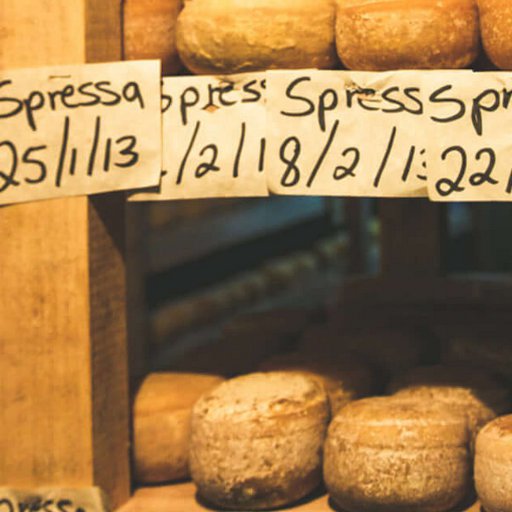 Spressa
25/1/13
spres
./2/1
Spress
8/2/13
Spr
22/